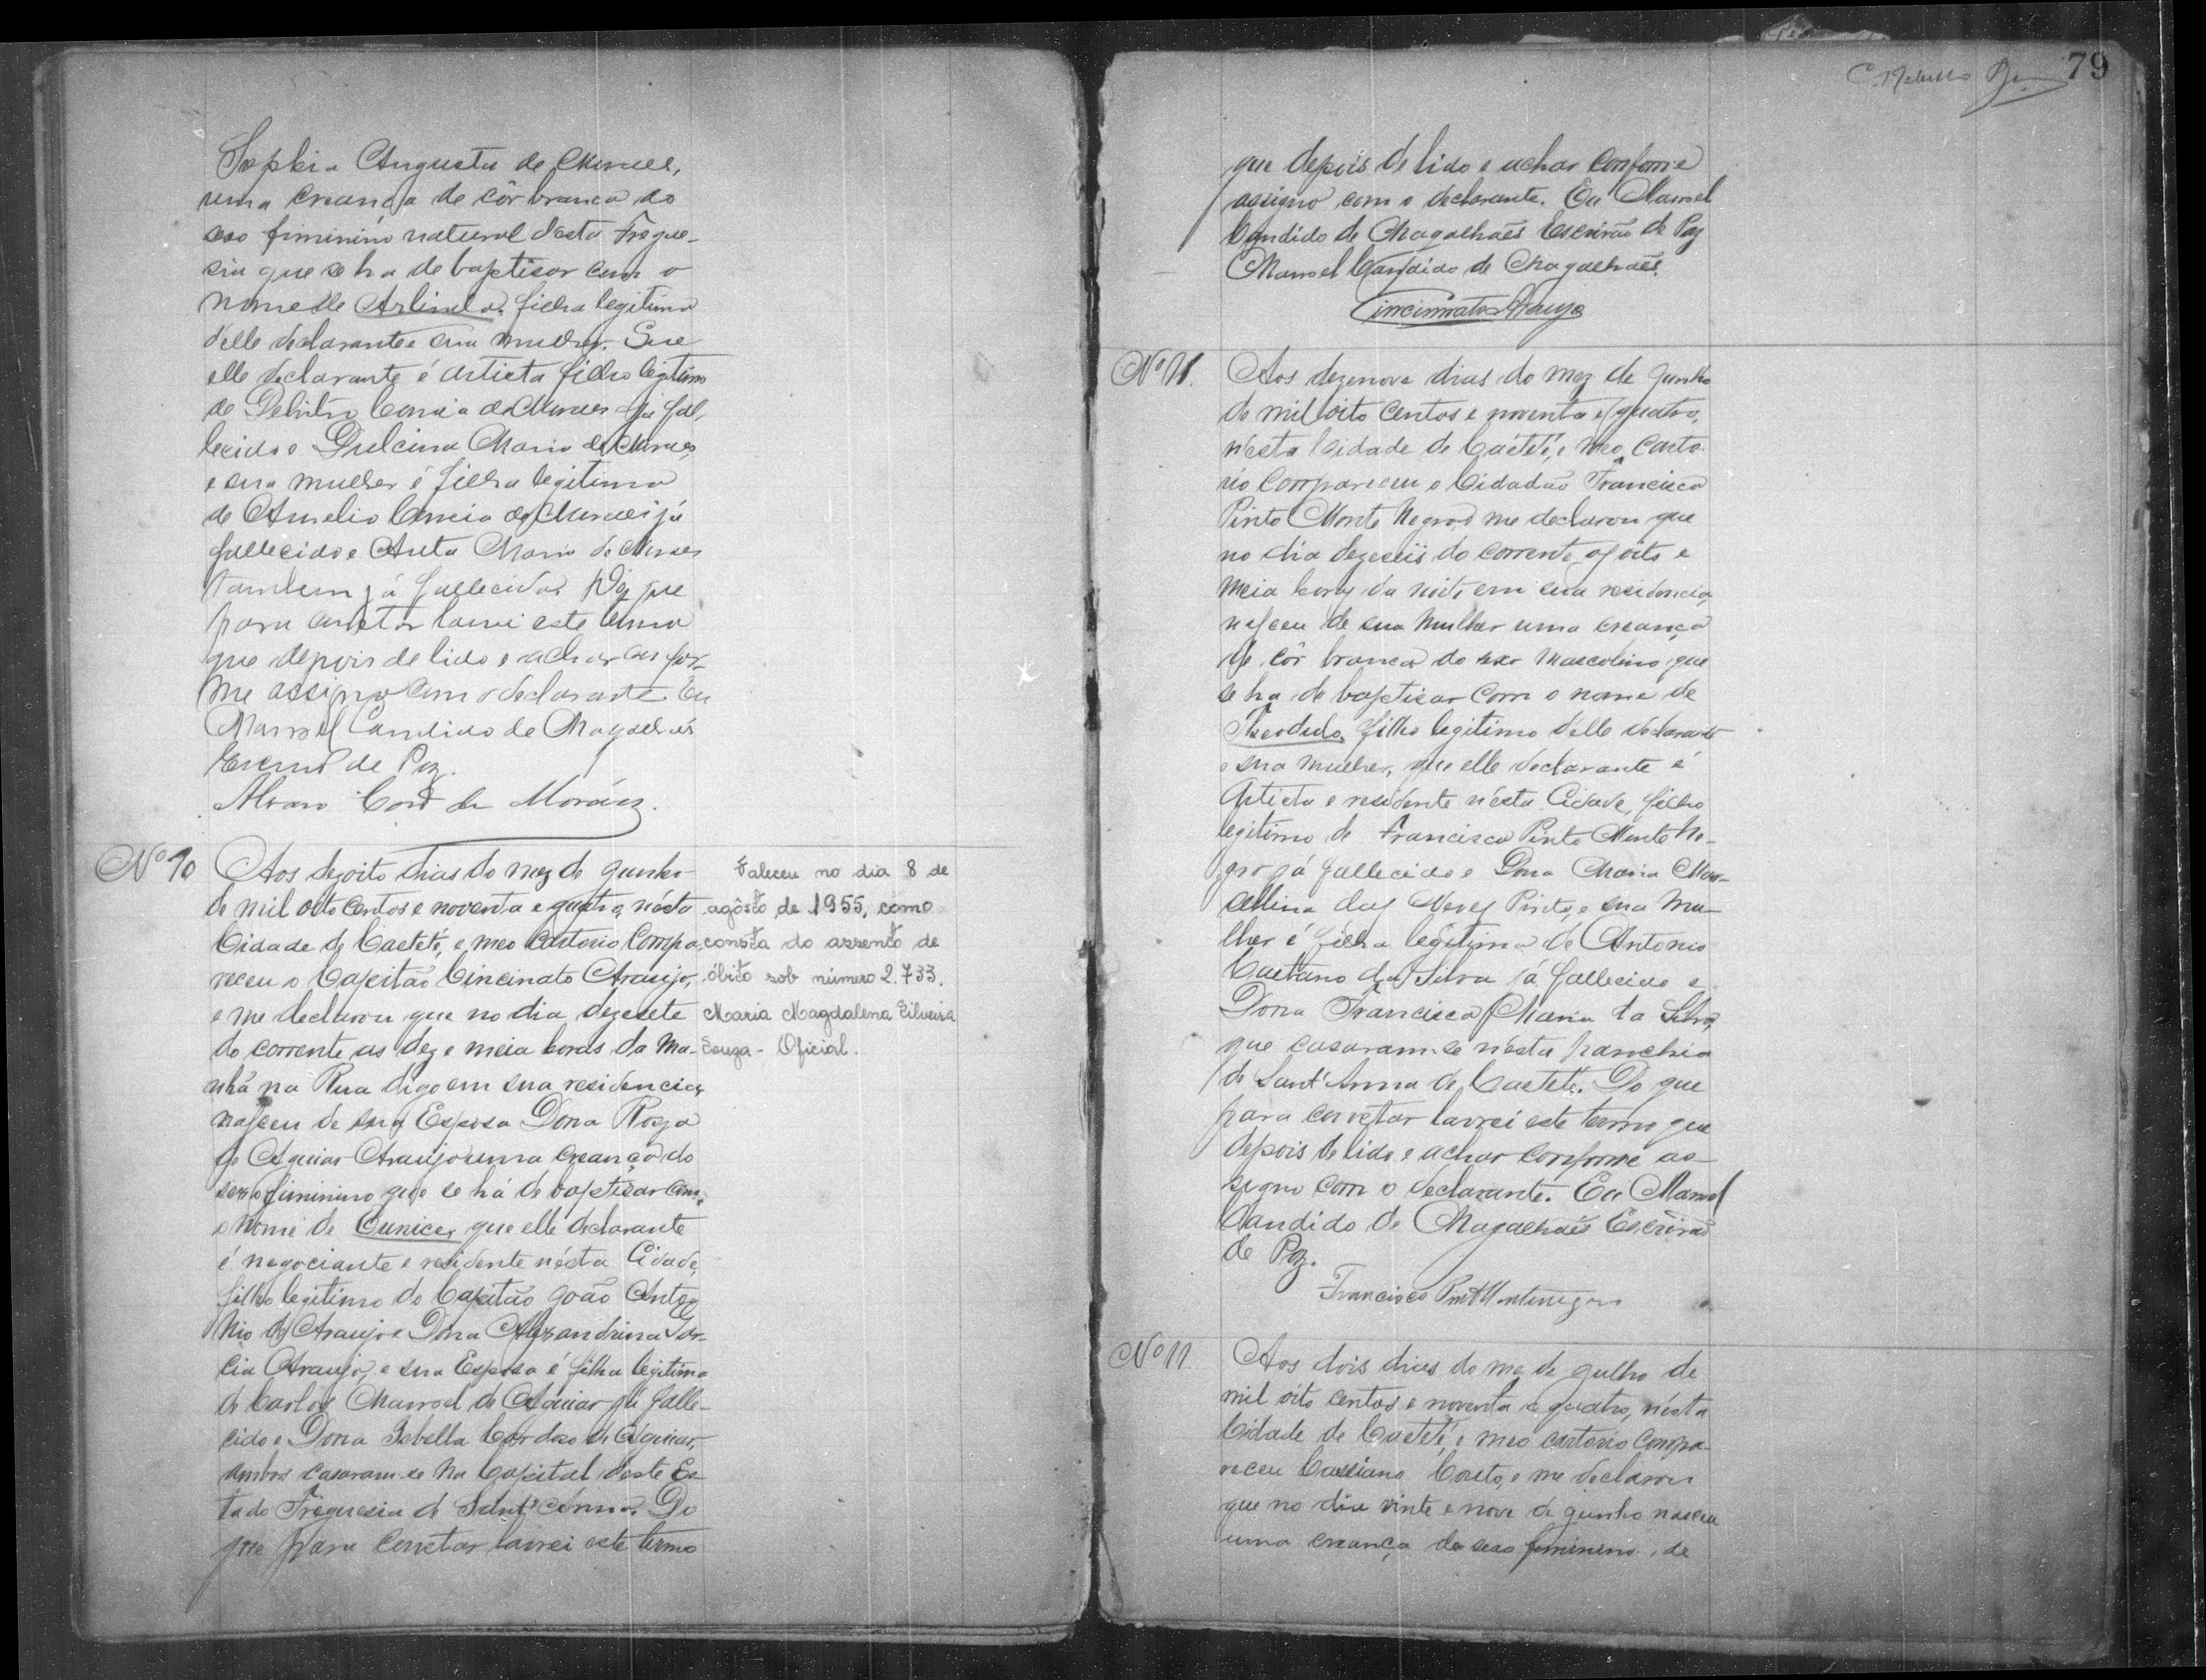 Sophia Augusta de Moraes,
uma creança de côr branca do
sexo feminino natural desta Fregue-
sia que se ha de baptisar com o
nome de Arlinda. filha legitima
d'elle declarante e sua mulher. Que
elle declarante é artista filho legitimo
de Correia de Moraes já fal,
lecido e Dulcina Maria de Moraes
e sua mulher é filha legitima
de Aurelio Correia de Moraes já
fallecido e Anta Maria de Moraes
tambem já fallecida, Do que
para constar lavrei este termo
que depois de lido e achar confor-
me assigno com o declarante. Eu
Manoel Candido de Magalhães
Escrivão de Paz.
Alvaro Cor de Moráes.
Nº 10 Aos dezoito dias do mez de Junho
de mil oito centos e noventa e quatro, nésta
Cidade de Caeteté, e meo Cartorio Compa
receu o Capitão Cincinato Araujo,
e me declarou que no dia dezesete
do corrente as dez e meia horas da ma-
nhã na Rua digo em sua residencia,
nasceu de sua Esposa Dona Rosa
de Aguiar Araujo uma creança do
sexo fiminino que se há de baptisar com
o nome de Eunice, que elle declarante
é negociante e residente nésta Cidade,
filho legitimo do Capitão João Anto
nio de Araujo e Dona Alexandrina Gar-
cia Araujo, e sua Esposa é filha legitima
de Carlos Manoel de Aguiar já falle-
cido e Dona Isabella Cardoso de Aguiar,
ambos casaram-se na Capital deste Es-
tado Freguesia de Sant'Anna. Do
que para constar lavrei este termo
Faleceu no dia 8 de
agôsto de 1955, como
consta do assento de
óbito sob número 2.733.
Maria Magdalena Silveira
Souza - Oficial.
79
que depois de lido e achar conforme
assigno com o declarante. Eu Manoel
Candido de Magalhães Escrivão de Paz
Manoel Candido de Magalhães.
Cincinnato Araujo
Nº 11. Aos dezenove dias do mez de Junho
de mil oito centos e noventa e quatro,
nésta Cidade de Caeteté, e meo Carto
rio Compareceu o Cidadão Francisco
Pinto Monte Negro, e me declarou que
no dia dezeseis do corrente, as oito e
meia horas da noite em sua residencia,
nasceu de sua mulher uma creança
de côr branca do sexo mascolino que
se ha de baptisar com o nome de
Theodulo, filho legitimo d'elle declarante
e sua mulher, que elle declarante é
Artista e residente nésta Cidade, filho
legitimo de Francisco Pinto Monte Ne-
gro já fallecido e Dona Maria Mar-
cellina das Neves Pinto, e sua mu-
lher é filha legitima de Antonio
Caetano da Silva já fallecido e
Dona Francisca Maria da Silva,
que casaram-se nésta parochia
de Sant'Anna de Caeteté. Do que
para constar lavrei este termo que
depois de lido e achar conforme as-
signo com o declarante. Eu Manoel
Candido de Magalhães Escrivão
de Paz.
Francisco Pinto Montenegro
Nº 11 Aos dois dias do mez de Julho de
mil oito centos e noventa e quatro, nésta
Cidade de Caeteté, e meo cartorio Compa-
receu Cassiano Couto, e me declarou
que no dia vinte e nove de Junho nasceu
uma creança do sexo feminino, de